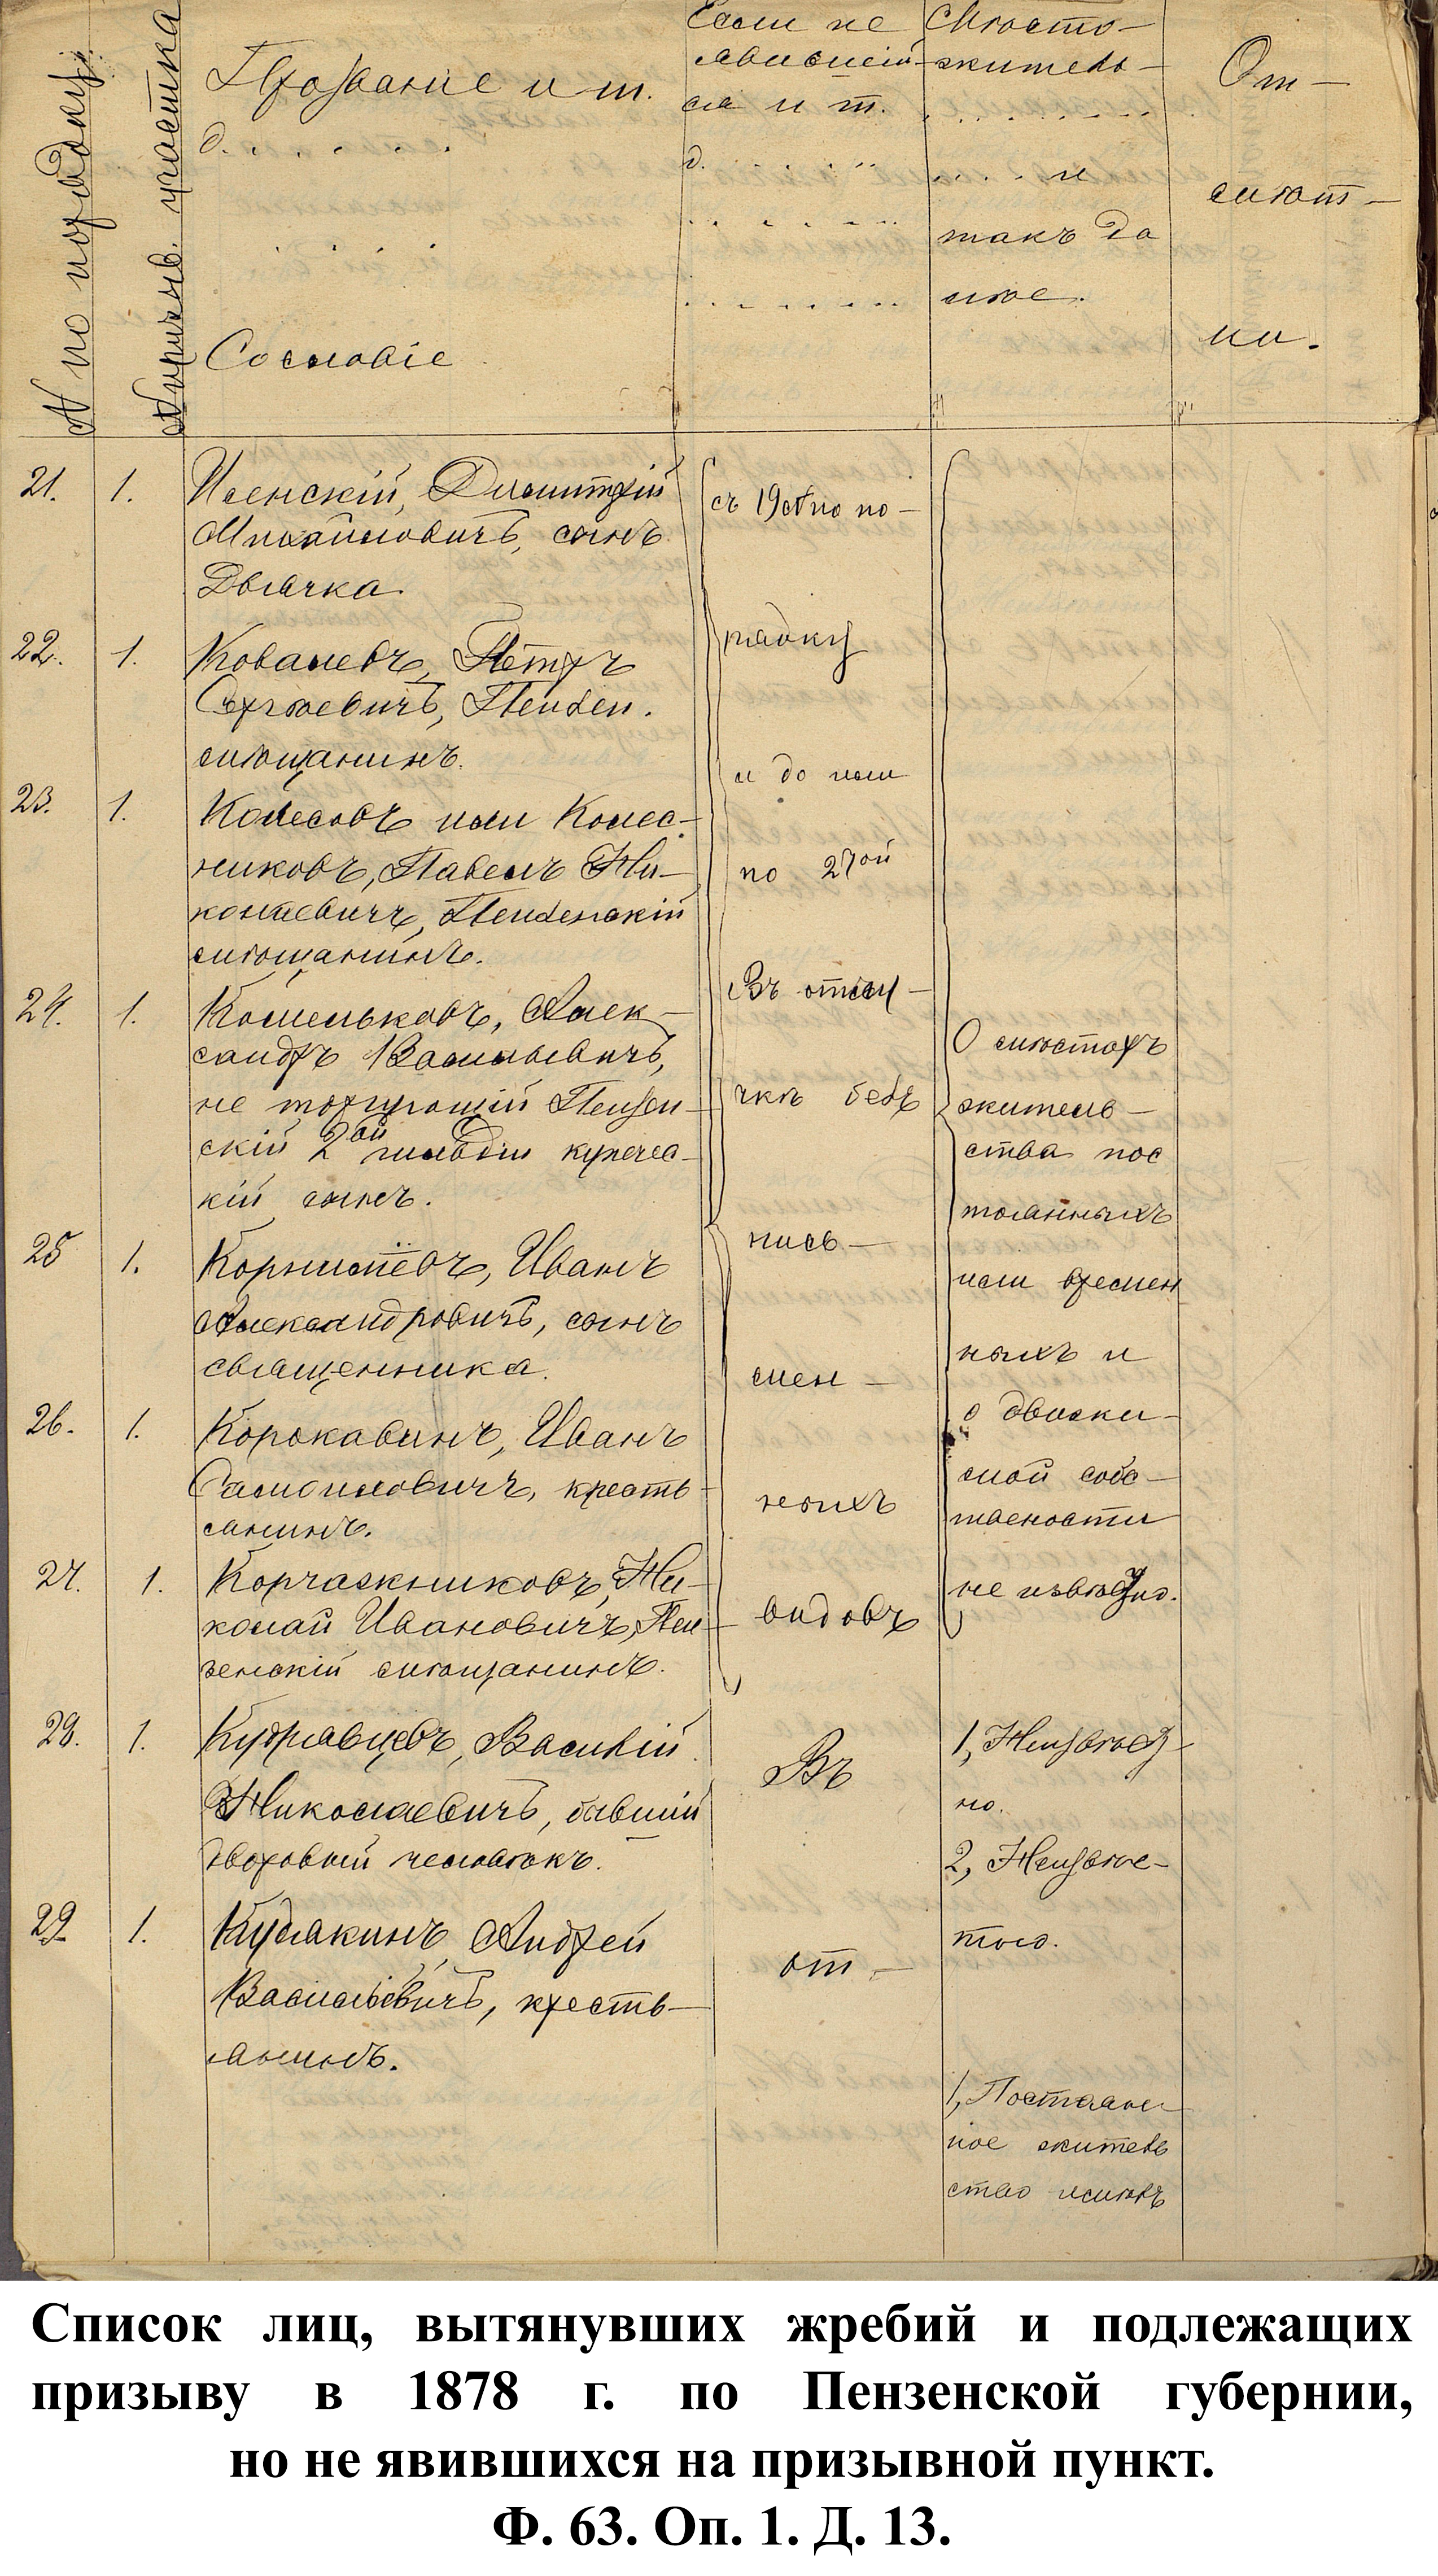 № по порядку.
№ призыв. участка
Прозвание и т.
д. . . . . .
Сословіе
Если не
явившій-
ся и т.
д. . . . . .
Место-
житель-
. . . . . . . .
. . . . и
такъ да
лѣе.
От-
мѣт-
ки.
21. 1. Иленскій, Димитрій
Михайловичъ, сынъ
Дьячка.
22. 1. Ковалевъ, Пётръ
Сергѣевичъ, Пензен.
мѣщанинъ.
23. 1. Колесовъ или Колес-
никовъ, Павелъ Ни-
колаевичъ, Пензенскій
мѣщанинъ.
24. 1. Комельковъ, Алек-
сандръ Васильевичъ,
не торгующій Пензен-
скій 2ой гильдіи купечес-
кій сынъ.
25 1. Корнилёвъ, Иванъ
Александровичъ, сынъ
священника.
26. 1. Коронавинъ, Иванъ
Самойловичъ, кресть-
янинъ.
27. 1. Корчажниковъ, Ни-
колай Ивановичъ, Пен-
зенскій мѣщанинъ.
28. 1. Кудрявцевъ, Василій
Николаевичъ, бывшій
дворовый человѣкъ.
29 1. Кудякинъ, Андрей
Васильевичъ, кресть-
янинъ.
съ 19 № по по-
рядку
и до или
по 27ой
Въ отлу-
чкѣ безъ
пись-
мен-
ныхъ
видовъ
Въ
от-
О мѣстахъ
житель-
ства пос
тоянныхъ
или времен
ныхъ и
о движи-
мой собс-
твености
не извѣстно.
1, Неизвѣст-
но.
2, Неизвѣс-
тно.
1, Постоян
ное житель
ство имѣлъ
Список лиц, вытянувших жребий и подлежащих
призыву в 1878 г. по Пензенской губернии,
но не явившихся на призывной пункт.
Ф. 63. Оп. 1. Д. 13.